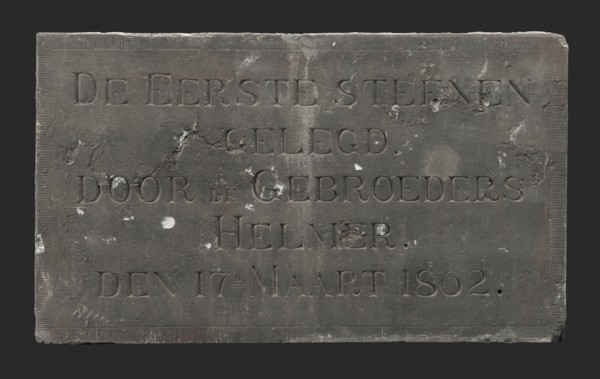 DE EERSTE STEENEN
GELEGD.
DOOR DE GEBROEDERS
HELMER.
DEN 17EN MAART 1862.